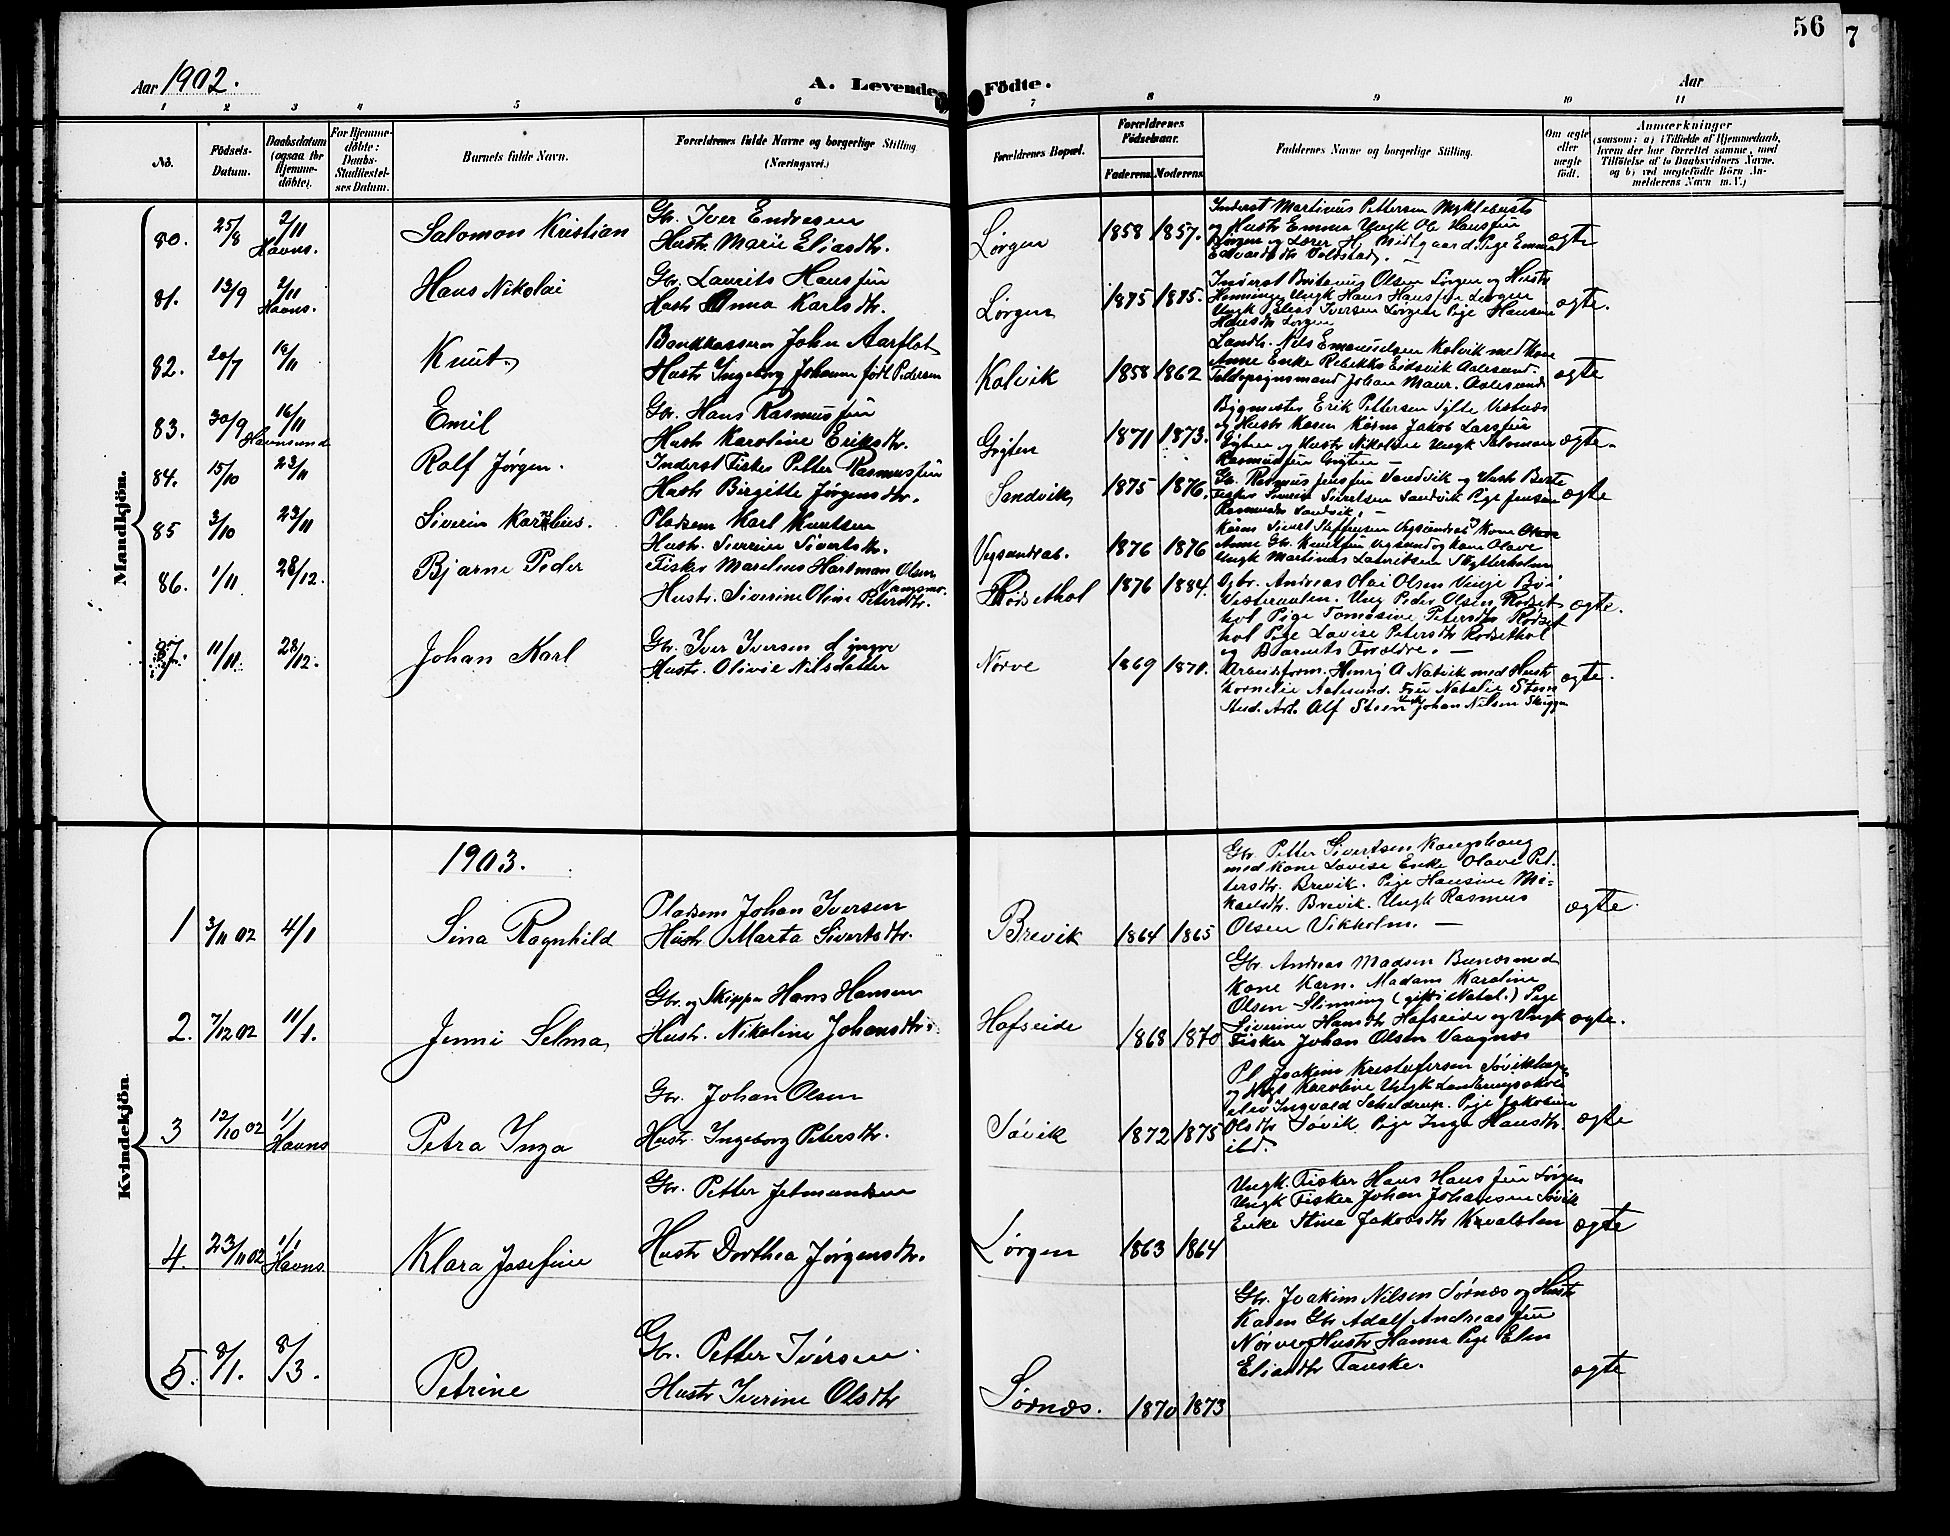 56
7
Aar 1902.
A. Levende Födte.
Aar
1 2 3 4 5 6 7 8 9 10 11
No.
Födsels-Datum.
Daabsdatum (ogsaa for Hjemme-döbte).
For Hjemme-döbte: Daabs-Stadfæstel-ses Datum.
Barnets fulde Navn.
Forældrenes fulde Navne og borgerlige Stilling (Næringsvei.)
Forældrenes Bopæl.
Forældrenes Födselsaar.
Faderens. Moderens.
Faddernes Navne og borgerlige Stilling.
Om ægte eller uægte födt.
Anmærkninger
(saasom: a) i Tilfælde af Hjemmedaab,
hvem der har forrettet samme, med
Tilföielse af to Daabsvidners Navne,
og b) ved uægtefödte Börn An-
melderens Navn m. V.)
Mandkjön.
80. 25/8 2/11 Havns. Salomon Kristian
Gbr. Iver Endresen
Hustr. Marie Eliasdtr.
Lørgen 1858 1857.
Inderst Martinus Pettersen Myklebust
og Hustr Emma Ungk Ole Hansen
ægte
81. 13/9 2/11 Havns. Hans Nikolai
Gbr. Laurits Hansen
Hustr Anna Karlsdtr.
Lørgen 1875 1875.
Olsen Lørgen og Hustr
Ungk Hans Hansen Lørgen
Ungk Elias Iversen Lørgen Pige Hansine
Hansdtr Lørgen
ægte.
82. 20/7 16/11 Knut
Bankkasserer John Aarflot
Hustr Ingeborg Johanne født Pedersen
Kolvik 1858 1862
Landh. Nils Emanuelsen Kolvik med Kone
Anne Enke Rebekka Eidsvik Aalesund.
Toldopsynsmand Johan Maur. Aalesund
ægte
83. 30/9 16/11 Havnsund Emil
Gbr. Hans Rasmussen
Hustr Karoline Eriksdtr.
Gigten 1871 1873.
Bygmester Erik Pettersen Sylte Vestnæs
og Hustr Karen Jakob Larsen
Gigten og Hustr Nikoline Ungk Salomon
Rasmussen Gigten —
ægte.
84. 15/10 23/11 Rolf Jørgen.
Inderst Fisker Petter Rasmussen
Hustr Birgitte Jørgensdtr.
Sandvik 1875 1876.
Gbr. Rasmus Jensen Sandvik og Hustr Berte
Fisker Sivertsen Sandvik Pige Jensine
Rasmusdtr Sandvik. —
ægte
85 3/10 23/11 Siverin
Pladsem Karl Knutsen
Hustr. Siverine Sivertsdtr.
Vegsundsab. 1876 1876
Sivert Steffensen Vegsundsab Kone Olave
Anne Gbr. Knutsen Vegsund og Kone Olave
Ungk Martinus Lauritsen Slyttesholm
86. 1/11 28/12. Bjarne Peder
Fisker Marelius Hartman Olsen
Hustr. Siverine Oline Petersdtr.
Rødsethol 1876 1884.
Gbr. Andreas Olai Olsen
Ung Peder Olsen Rødset
hol Pige Tomasine Petersdtr Rødset
hol Pige Lovise Petersdtr Rødsethol
og Barnets Forældre. —
ægte.
87. 11/11 28/12. Johan Karl
Gbr. Iver Iversen d yngre
Hustr. Olivie Nilsdatter
Nørve 1869 1870.
Arbeidsform. Henrij A Natvik med Hustr
Kornelie Aalesund. Fru Natalie Steen
Stud. Art. Alf Steen Ungk Johan Nilsen
ægte.
Kvindekjön.
1903.
1 3/11 02 4/1 Sina Ragnhild
Pladsem Johan Iversen
Hustr Marta Sivertsdtr.
Brevik 1864 1865
Gbr. Petter Sivertsen Kongshaug
med Kone Lovise Enke Olave Pet-
tersdtr. Brevik. Pige Hansine Mi-
kaelsdtr. Brevik. Ungk Rasmus
Olsen Vikholm. —
ægte.
2. 7/12 02 11/1. Jenni Selma
Gbr. og Skipper Hans Hansen
Hustr. Nikoline Johansdtr.
Hofseide 1868 1870
Gbr. Andreas Madsen Bunæs med
Kone Karn. Madam Karoline
Olsen Slinning (gift i Natal.) Pige
Siverine Hansdtr Hofseide og Ungk
Fisker Johan Olsen Vaagnæs
ægte.
3 12/10 02 1/1 Havns Petra Inga
Gbr. Johan Olsen
Hustr. Ingeborg Petersdtr.
Søvik 1872 1875
Pl. Joakim Kristofersen
og Hust Karoline Ungk Landbrugsskole
elev Ingvald Scheldrup. Pige Jakobine
Olsdtr Søvik Pige Inga Hansdtr.
ibd.
ægte
4. 23/11 02 1/1 Havns Klara Josefine
Gbr. Petter Jetmundsen
Hustr Dorthea Jørgensdtr.
Lørgen 1863 1864
Ungk. Fisker Hans Hansen Lørgen
Ungk Fisker Johan Johansen Søvik
Enke Stina Jakobsdtr Kvalsten
ægte
5. 8/1. 8/3. Petrine
Gbr. Petter Iversen.
Hustr Iverine Olsdtr
Sørnæs. 1870 1873
Gbr. Joakim Nilsen Sørnæs og Hustr
Karen Gbr Adolf Andreassen
Nørve og Hustr Hanna Pige Elen
Eliasdtr Tauske.
ægte